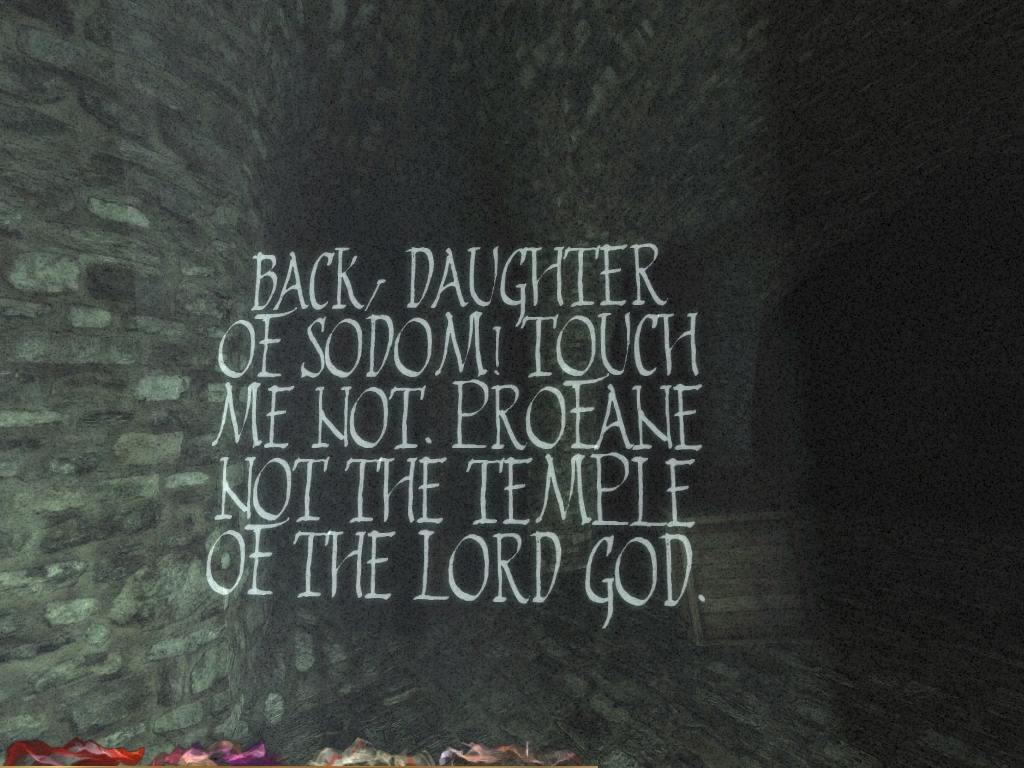 BACK, DAUGHTER
OF SODOM! TOUCH
ME NOT. PROFANE
NOT THE TEMPLE
OF THE LORD GOD.